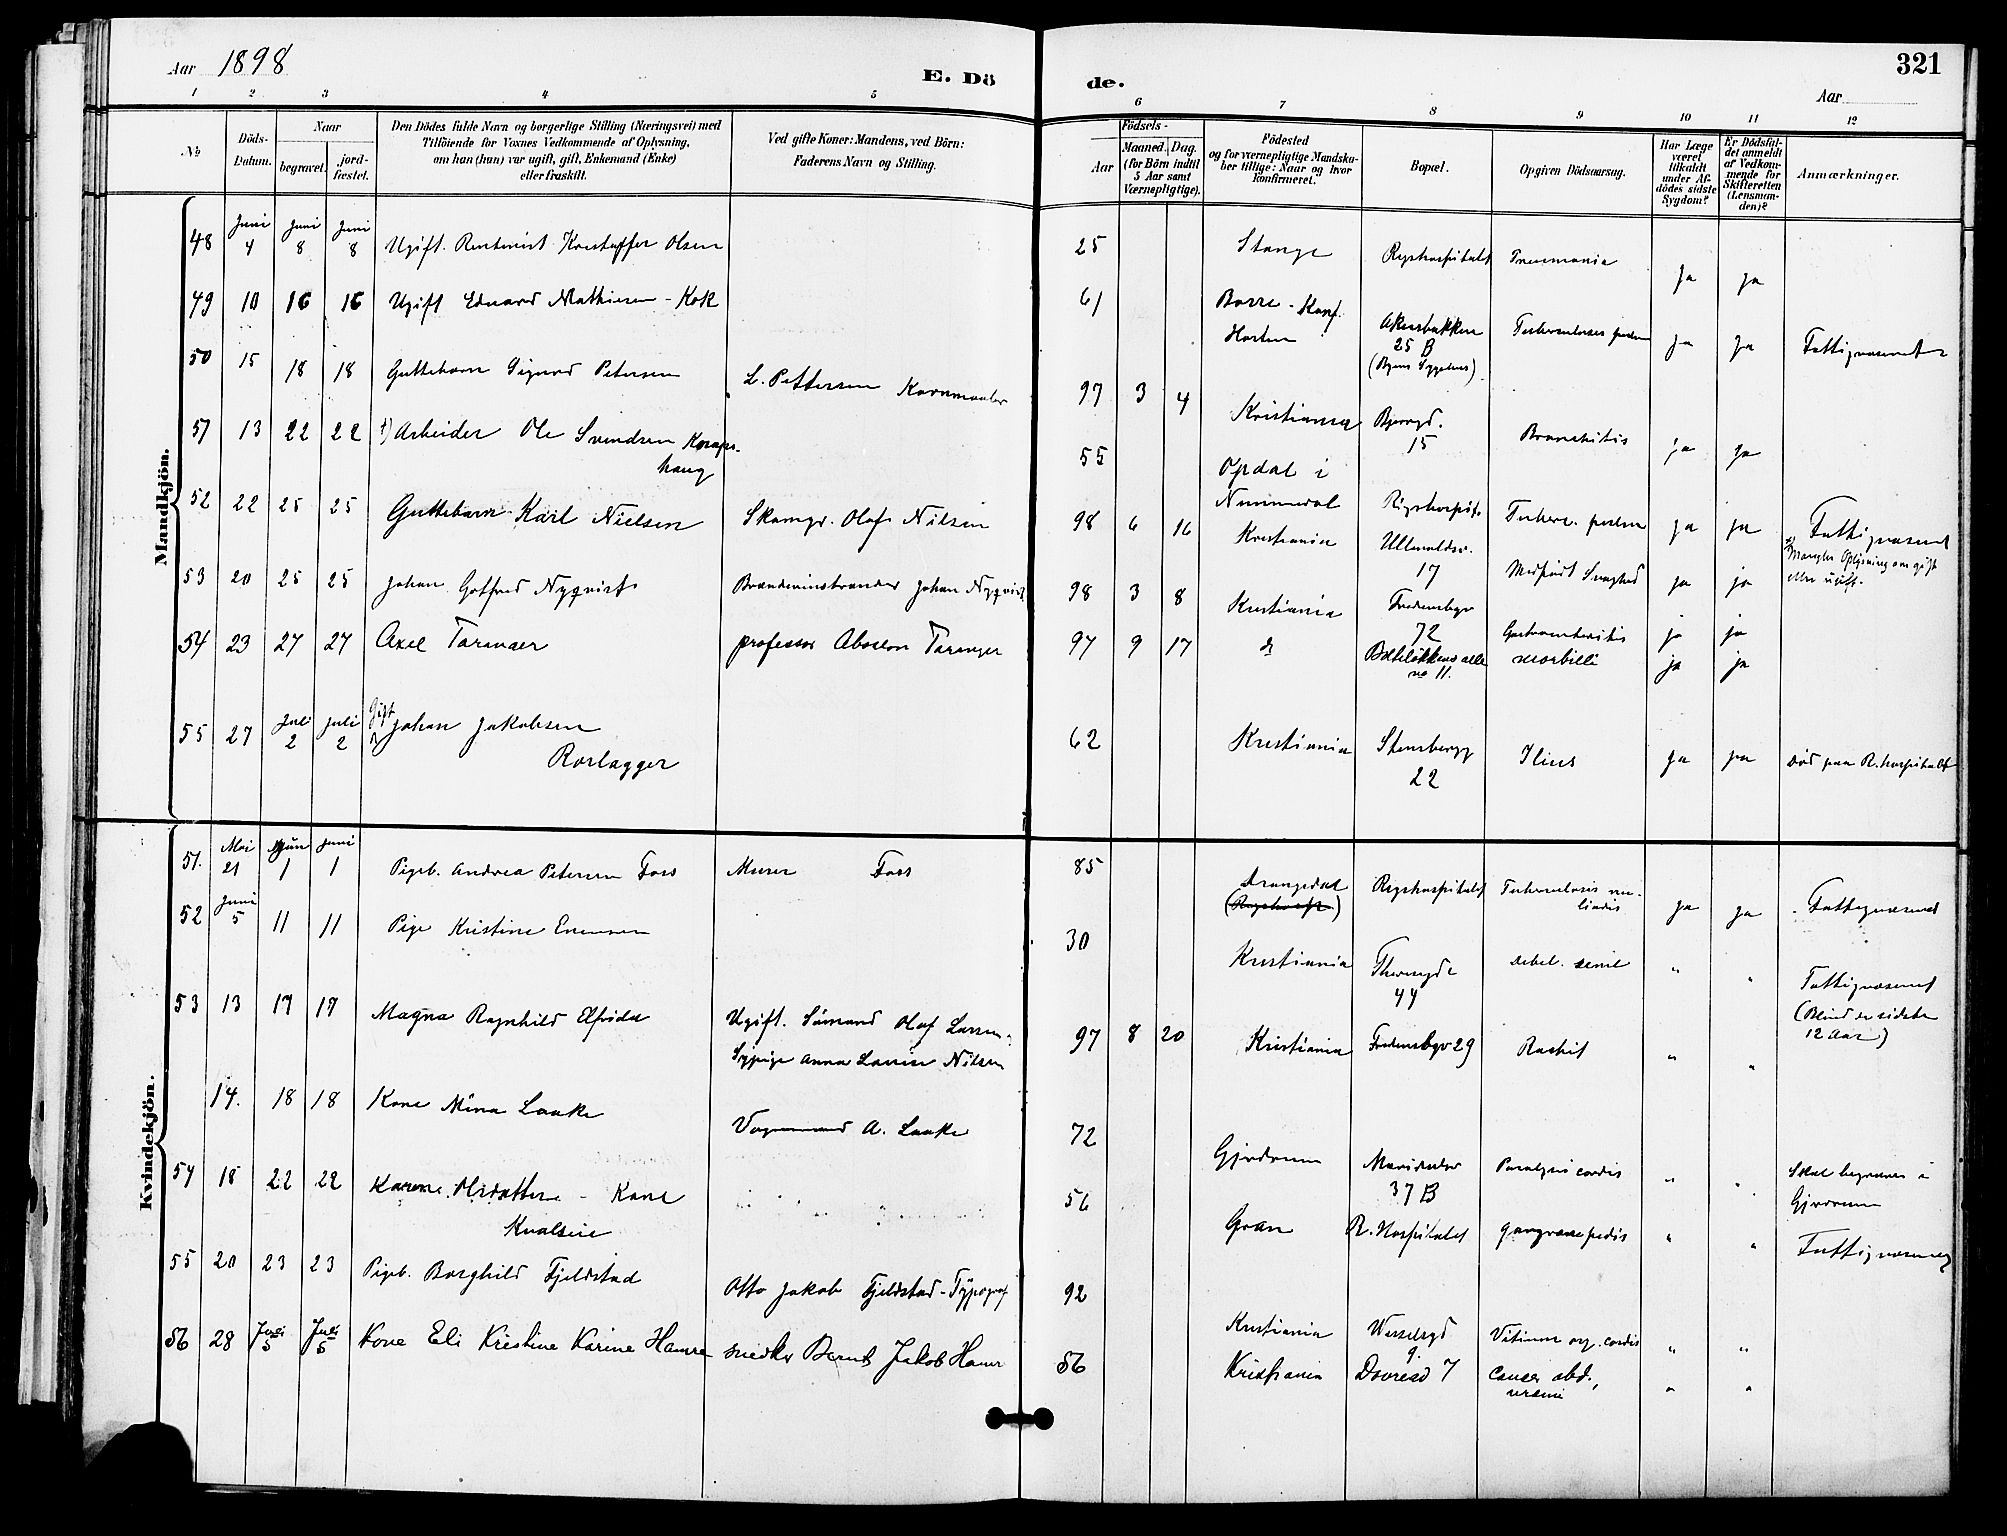 Aar 1898
E. Dö
de.
321
Aar
1 2 3 4 5 6 7 8 9 10 11 12
No
Döds-Datum.
Naar
begravet.
jord-fæstet.
Den Dödes fulde Navn og borgerlige Stilling (Næringsvei) med
Tilföiende for Voxnes Vedkommende af Oplysning,
om han (hun) var ugift, gift, Enkemand (Enke)
eller fraskilt.
Ved gifte Koner: Mandens, ved Börn:
Faderens Navn og Stilling.
Födsels-
Aar
Maaned. Dag.
(for Börn indtil
5 Aar samt
Værnepligtige).
Födested
og for værnepligtige Mandska-
ber tillige: Naar og hvor
konfirmeret.
Bopæl.
Opgiven Dödsaarsag.
Har Læge
været
tilkaldt
under Af-
dödes sidste
Sygdom?
Er Dödsfal-
det anmeldt
af Vedkom-
mende for
Skifteretten
(Lensman-
den)?
Anmærkninger.
Mandkjön.
48 Juni 4 Juni 8 Juni 8 Ugift. Kristoffer Olsen 25 Stange Rigshospitalet Pneumonia Ja Ja
49 10 16 16 Ugift Edvard Mathiesen - Kok 61 Borre - Konf. Horten Akersbakken 25 B (Byens Sygehus) Ja Ja Fattigvæsenet
50 15 18 18 Guttebarn Sigurd Petersen L. Pettersen 97 3 4 Kristiania 15 Bronchitis Ja Ja
51 13 22 22 Arbeider Ole Svendsen 55 Opdal i Nummedal Rigshospit. Ja Ja Fattigvæsenet
Mangler Oplysning om gift eller ugift.
52 22 25 25 Guttebarn Karl Nielsen Olaf Nilsen 98 6 16 Kristiania Ullevoldsv. 17 Medfødt Svaghed Ja Ja
53 20 25 25 Johan Gotfred Nyqvist Johan Nyqvist 98 3 8 Kristiania Fredensbgv 72 Gastroenteritis ja ja
54 23 27 27 Axel Taranger professor Absalon Taranger 97 9 17 do no 11. morbilli ja ja
55 27 Juli 2 Juli 2 Gift Johan Jakobsen
62 Kristiania Stensberggt 22 Ilius Ja Ja død paa R. hospitalet
Kvindekjön.
51. Mai 21 Juni 1 Juni 1 Pigeb. Andrea Petersen Foss Murer Foss 85 Drangedal Rigshospitalet Tuberculosis miliaris Ja Ja Fattigvæsenet
52 Juni 5 11 11 Pige Kristine Evensen 30 Kristiania 44 debil. senil " " Fattigvæsenet
(Blind de sidste
12 Aar)
53 13 17 17 Magna Ragnhild Elfrida Ugift. Sømand Olaf Larsen.
Sypige Anna Lovise Nilsen 97 8 20 Kristiania Fredensbgv 29 Rachit " "
14. 18 18 Kone Mina Laake Vognmand A. Laake 72 Gjerdrum Maridalsv 37 B Paralysis cordis " " Skal begraves i
Gjerdrum
54 18 22 22 Karen Olsdatter - Kone 56 Gran R. Hospitalet gangræne pedis " " Fattigvæsenet
55 20 23 23 Pigeb. Borghild Fjeldstad Otto Jakob Fjeldstad - Typograf 92 Kristiania Wesselsgd 9. Vitium org. cordis " "
56 28 Juli 5 Juli 5 Kone Eli Kristine Karine Hamre snedker Bernt Jakob Hamre 56 Kristiania 7 Cancer abd., uræmi " "